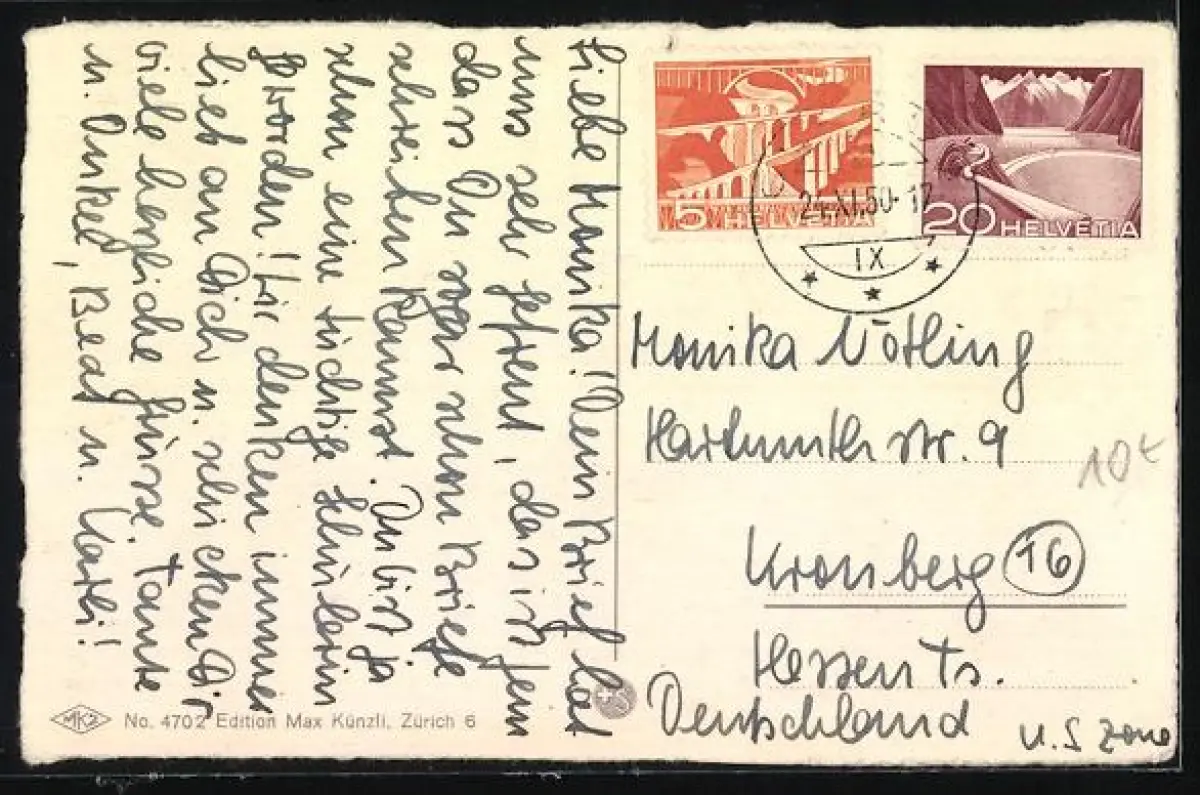 Liebe Monika! Dein Brief hat
uns sehr gefreut, das ist fein
dass Du sogar schon Briefe
schreiben kannst. Du bist ja
schon eine tüchtige Schülerin
geworden! Wir denken immer
lieb an Dich u. schicken Dir
viele herzliche Grüsse. Tante
u. Onkel, Beat u.
5 HELVETIA
20 HELVETIA
24.XI.50-12
IX
Monika Nötling
Hartmuthstr. 9
10€
Kronberg 16
Hessen Ts.
Deutschland
U.S Zone
MKZ No. 4702 Edition Max Künzli, Zürich 6